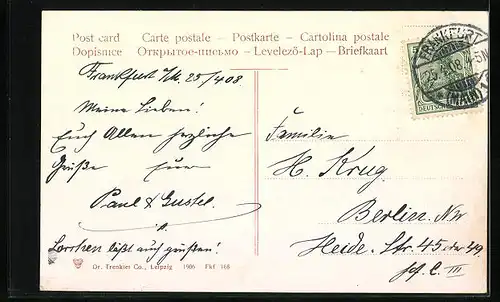 Post card Carte postale – Postkarte – Cartolina postale
Dopisnice Открытое-письмо – Levelező-Lap – Briefkaart
Frankfurt 25/4 08.
Meine Lieben!
Euch Allen herzliche
Grüße
Paul & Gustel.
Lorchen läßt auch grüßen!
Familie
H. Krug
Berlin. NW
Heide-Str. 45
III
FRANKFURT
(MAIN) 1
Dr. Trenkler Co., Leipzig 1906 Fkf 168